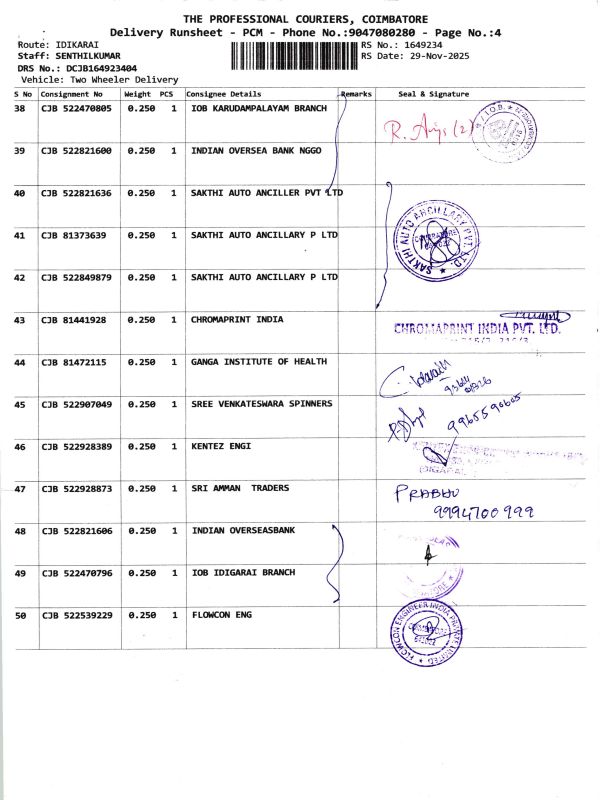 THE PROFESSIONAL COURIERS, COIMBATORE
Delivery Runsheet - PCM - Phone No.:9047080280 - Page No.:4
Route: IDIKARAI RS No.: 1649234
Staff: SENTHILKUMAR RS Date: 29-Nov-2025
DRS No.: DCJB164923404
Vehicle: Two Wheeler Delivery
S No Consignment No Weight PCS Consignee Details Remarks Seal & Signature
38 CJB 522470805 0.250 1 IOB KARUDAMPALAYAM BRANCH
39 CJB 522821600 0.250 1 INDIAN OVERSEA BANK NGGO
40 CJB 522821636 0.250 1 SAKTHI AUTO ANCILLER PVT LTD
SAKTHI AUTO ANCILLARY PVT. LTD.
41 CJB 81373639 0.250 1 SAKTHI AUTO ANCILLARY P LTD
42 CJB 522849879 0.250 1 SAKTHI AUTO ANCILLARY P LTD
43 CJB 81441928 0.250 1 CHROMAPRINT INDIA
CHROMAPRINT INDIA PVT. LTD.
44 CJB 81472115 0.250 1 GANGA INSTITUTE OF HEALTH
45 CJB 522907049 0.250 1 SREE VENKATESWARA SPINNERS
9965590605
46 CJB 522928389 0.250 1 KENTEZ ENGI
47 CJB 522928873 0.250 1 SRI AMMAN TRADERS PRABHU
9994700999
48 CJB 522821606 0.250 1 INDIAN OVERSEASBANK
49 CJB 522470796 0.250 1 IOB IDIGARAI BRANCH
50 CJB 522539229 0.250 1 FLOWCON ENG
FLOWCON ENGINEER INDIA PRIVATE LIMITED